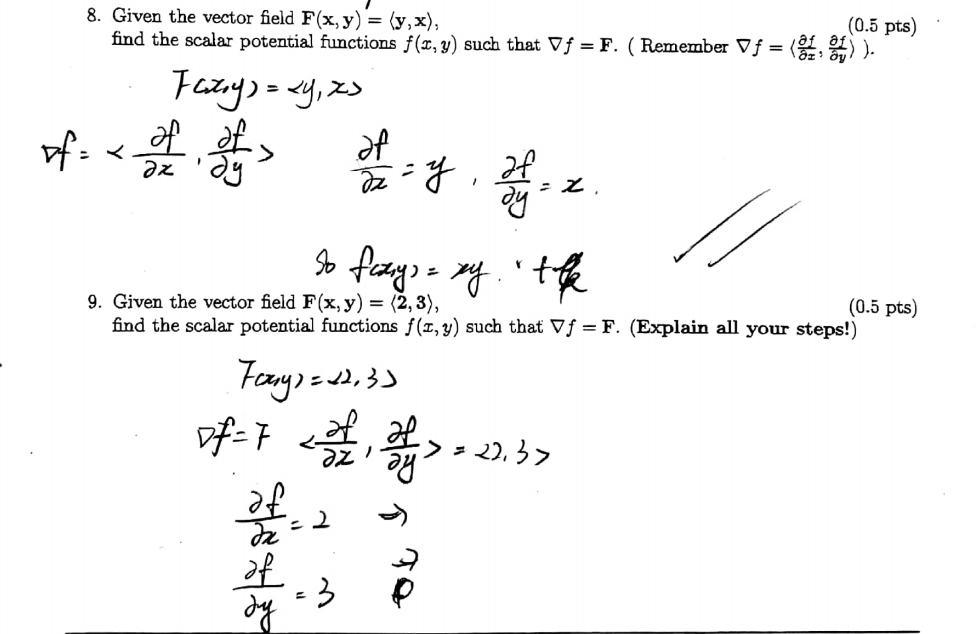 8. Given the vector field F(x, y) = ⟨y, x⟩, (0.5 pts)
find the scalar potential functions f(x, y) such that ∇f = F. ( Remember ∇f = ⟨∂f/∂x, ∂f/∂y⟩ ).
F(x,y) = <y, x>
∇f = <∂f/∂x, ∂f/∂y> ∂f/∂x = y, ∂f/∂y = x.
So f(x,y) = xy. +
9. Given the vector field F(x, y) = ⟨2, 3⟩, (0.5 pts)
find the scalar potential functions f(x, y) such that ∇f = F. (Explain all your steps!)
F(x,y) = <2, 3>
∇f = F <∂f/∂x, ∂f/∂y> = <2, 3>
∂f/∂x = 2 ⇒
∂f/∂y = 3 ⇒